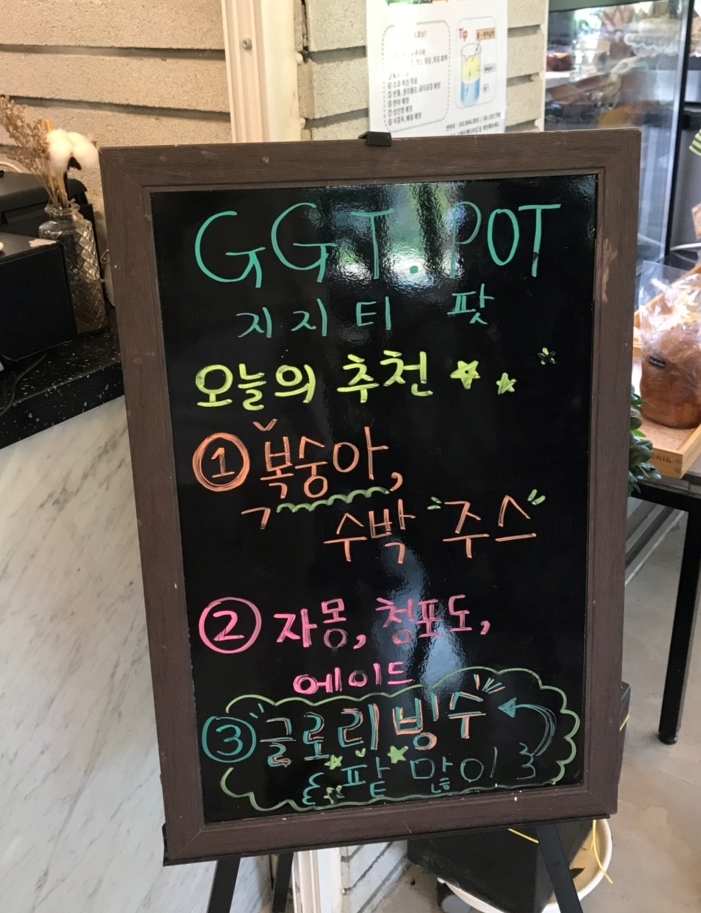 GGT.POT
지지티 팟
오늘의 추천
① 복숭아,
수박 "주스"
② 자몽, 청포도,
에이드
③ 글로리빙수
팥 많이
Tip